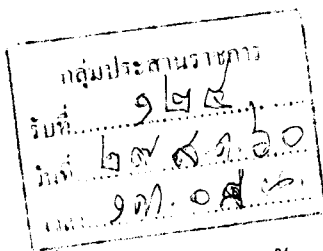 กลุ่มประสานราชการ
รับที่ ๑๒๕
วันที่ ๒๙ ส.ค. ๖๐
เวลา ๑๓.๐๕ น.